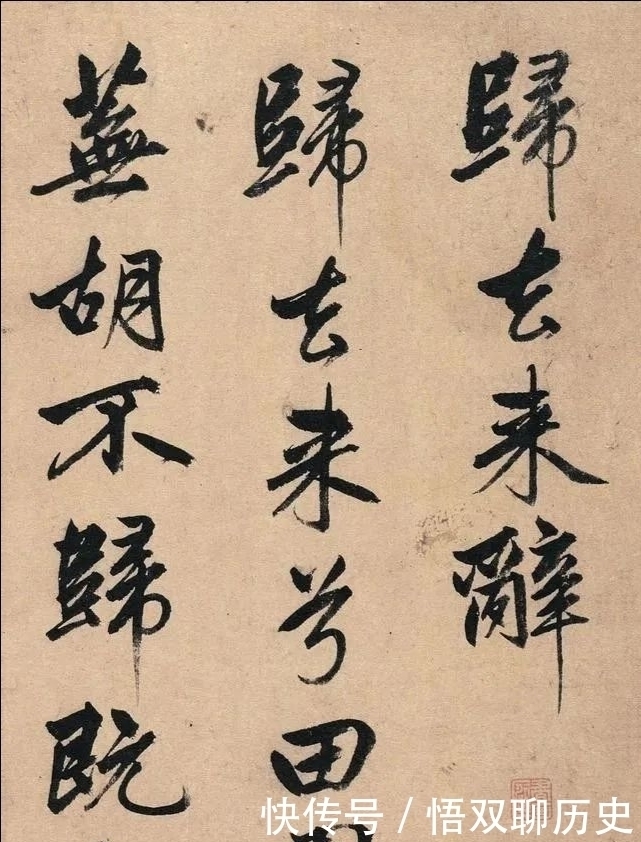 歸去来辭
歸去来兮田
蕪胡不歸既
快传号/悟双聊历史